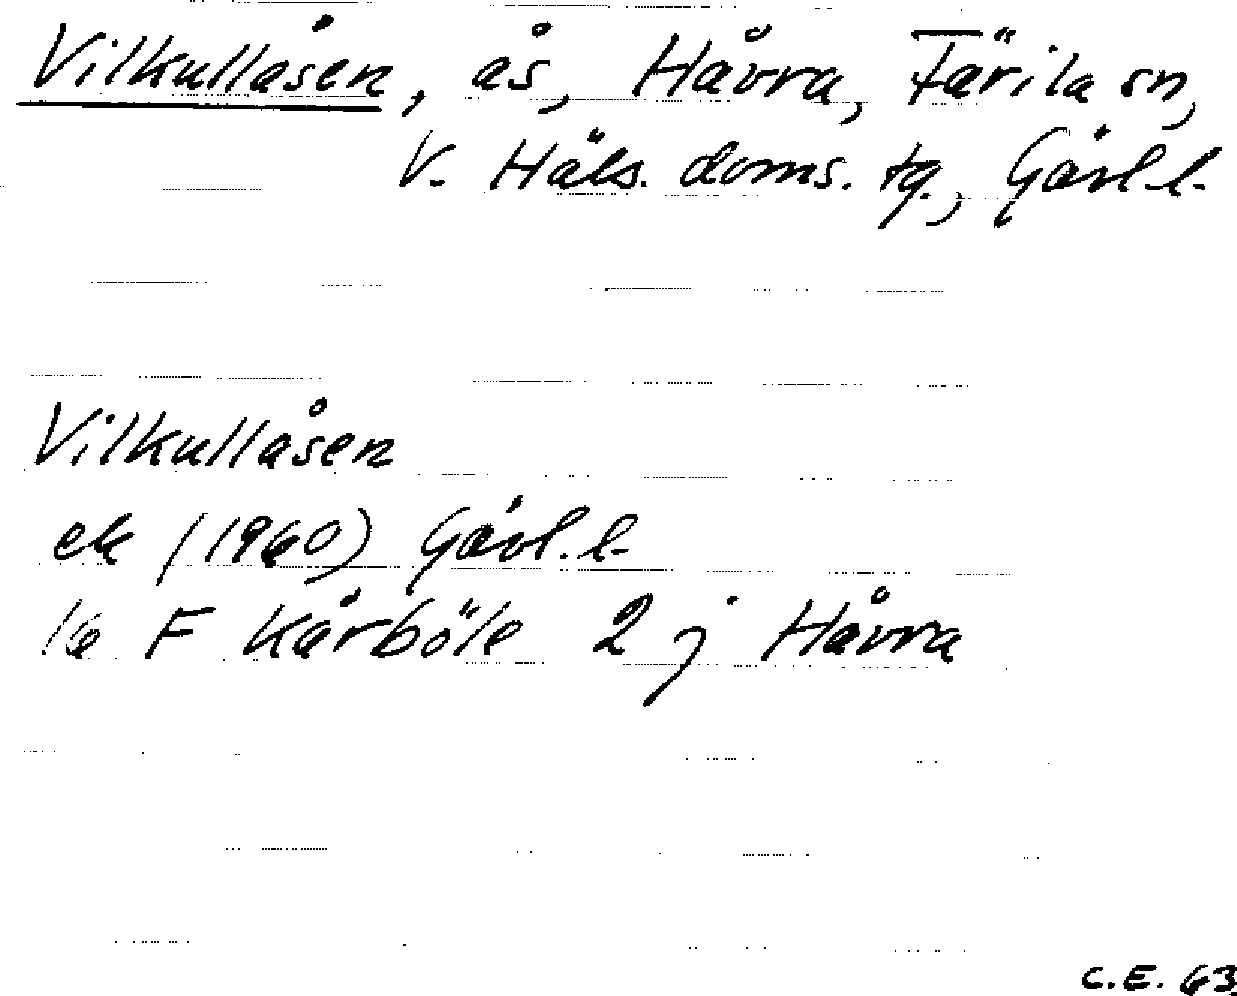 Vilkullåsen, ås, Håvra, Färila sn,
V. Häls. doms. tg., Gävl. l.
Vilkullåsen
ek (1960) Gävl. l.
16 F Kårböle 2 j Håvra
C.E. 63